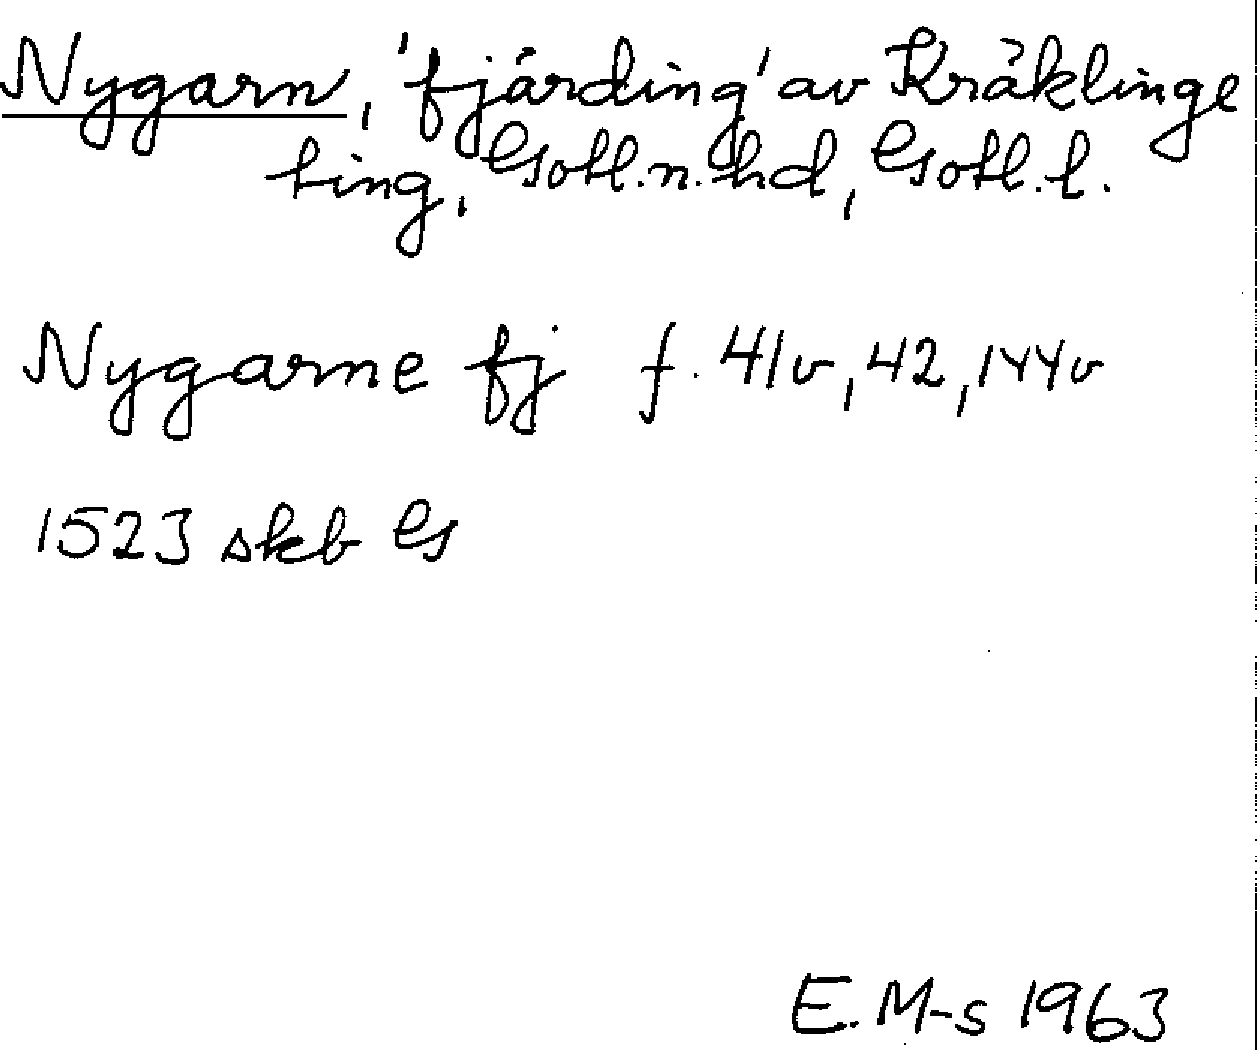 Nygarn, 'fjärding' av Kräklinge
ting, Gotl.n.hd, Gotl.l.
Nygarne fj f. 41v, 42, 144v
1523 skb G
E. M-s 1963